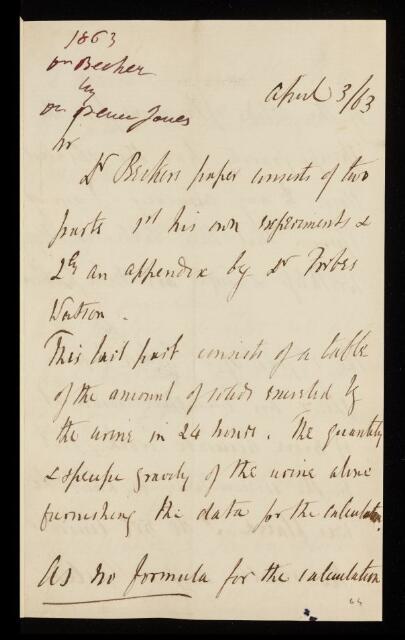 1863
on Becker
by
Dr Bence Jones
April 3/63
Sir
Dr Beckers paper consists of two
parts 1st his own experiments &
2ly an appendix by Dr Forbes
Watson.
This last part consists of a table
of the amount of solids excreted by
the urine in 24 hours. The quantity
& specific gravity of the urine alone
furnishing the data for the calculation.
As no formula for the calculation